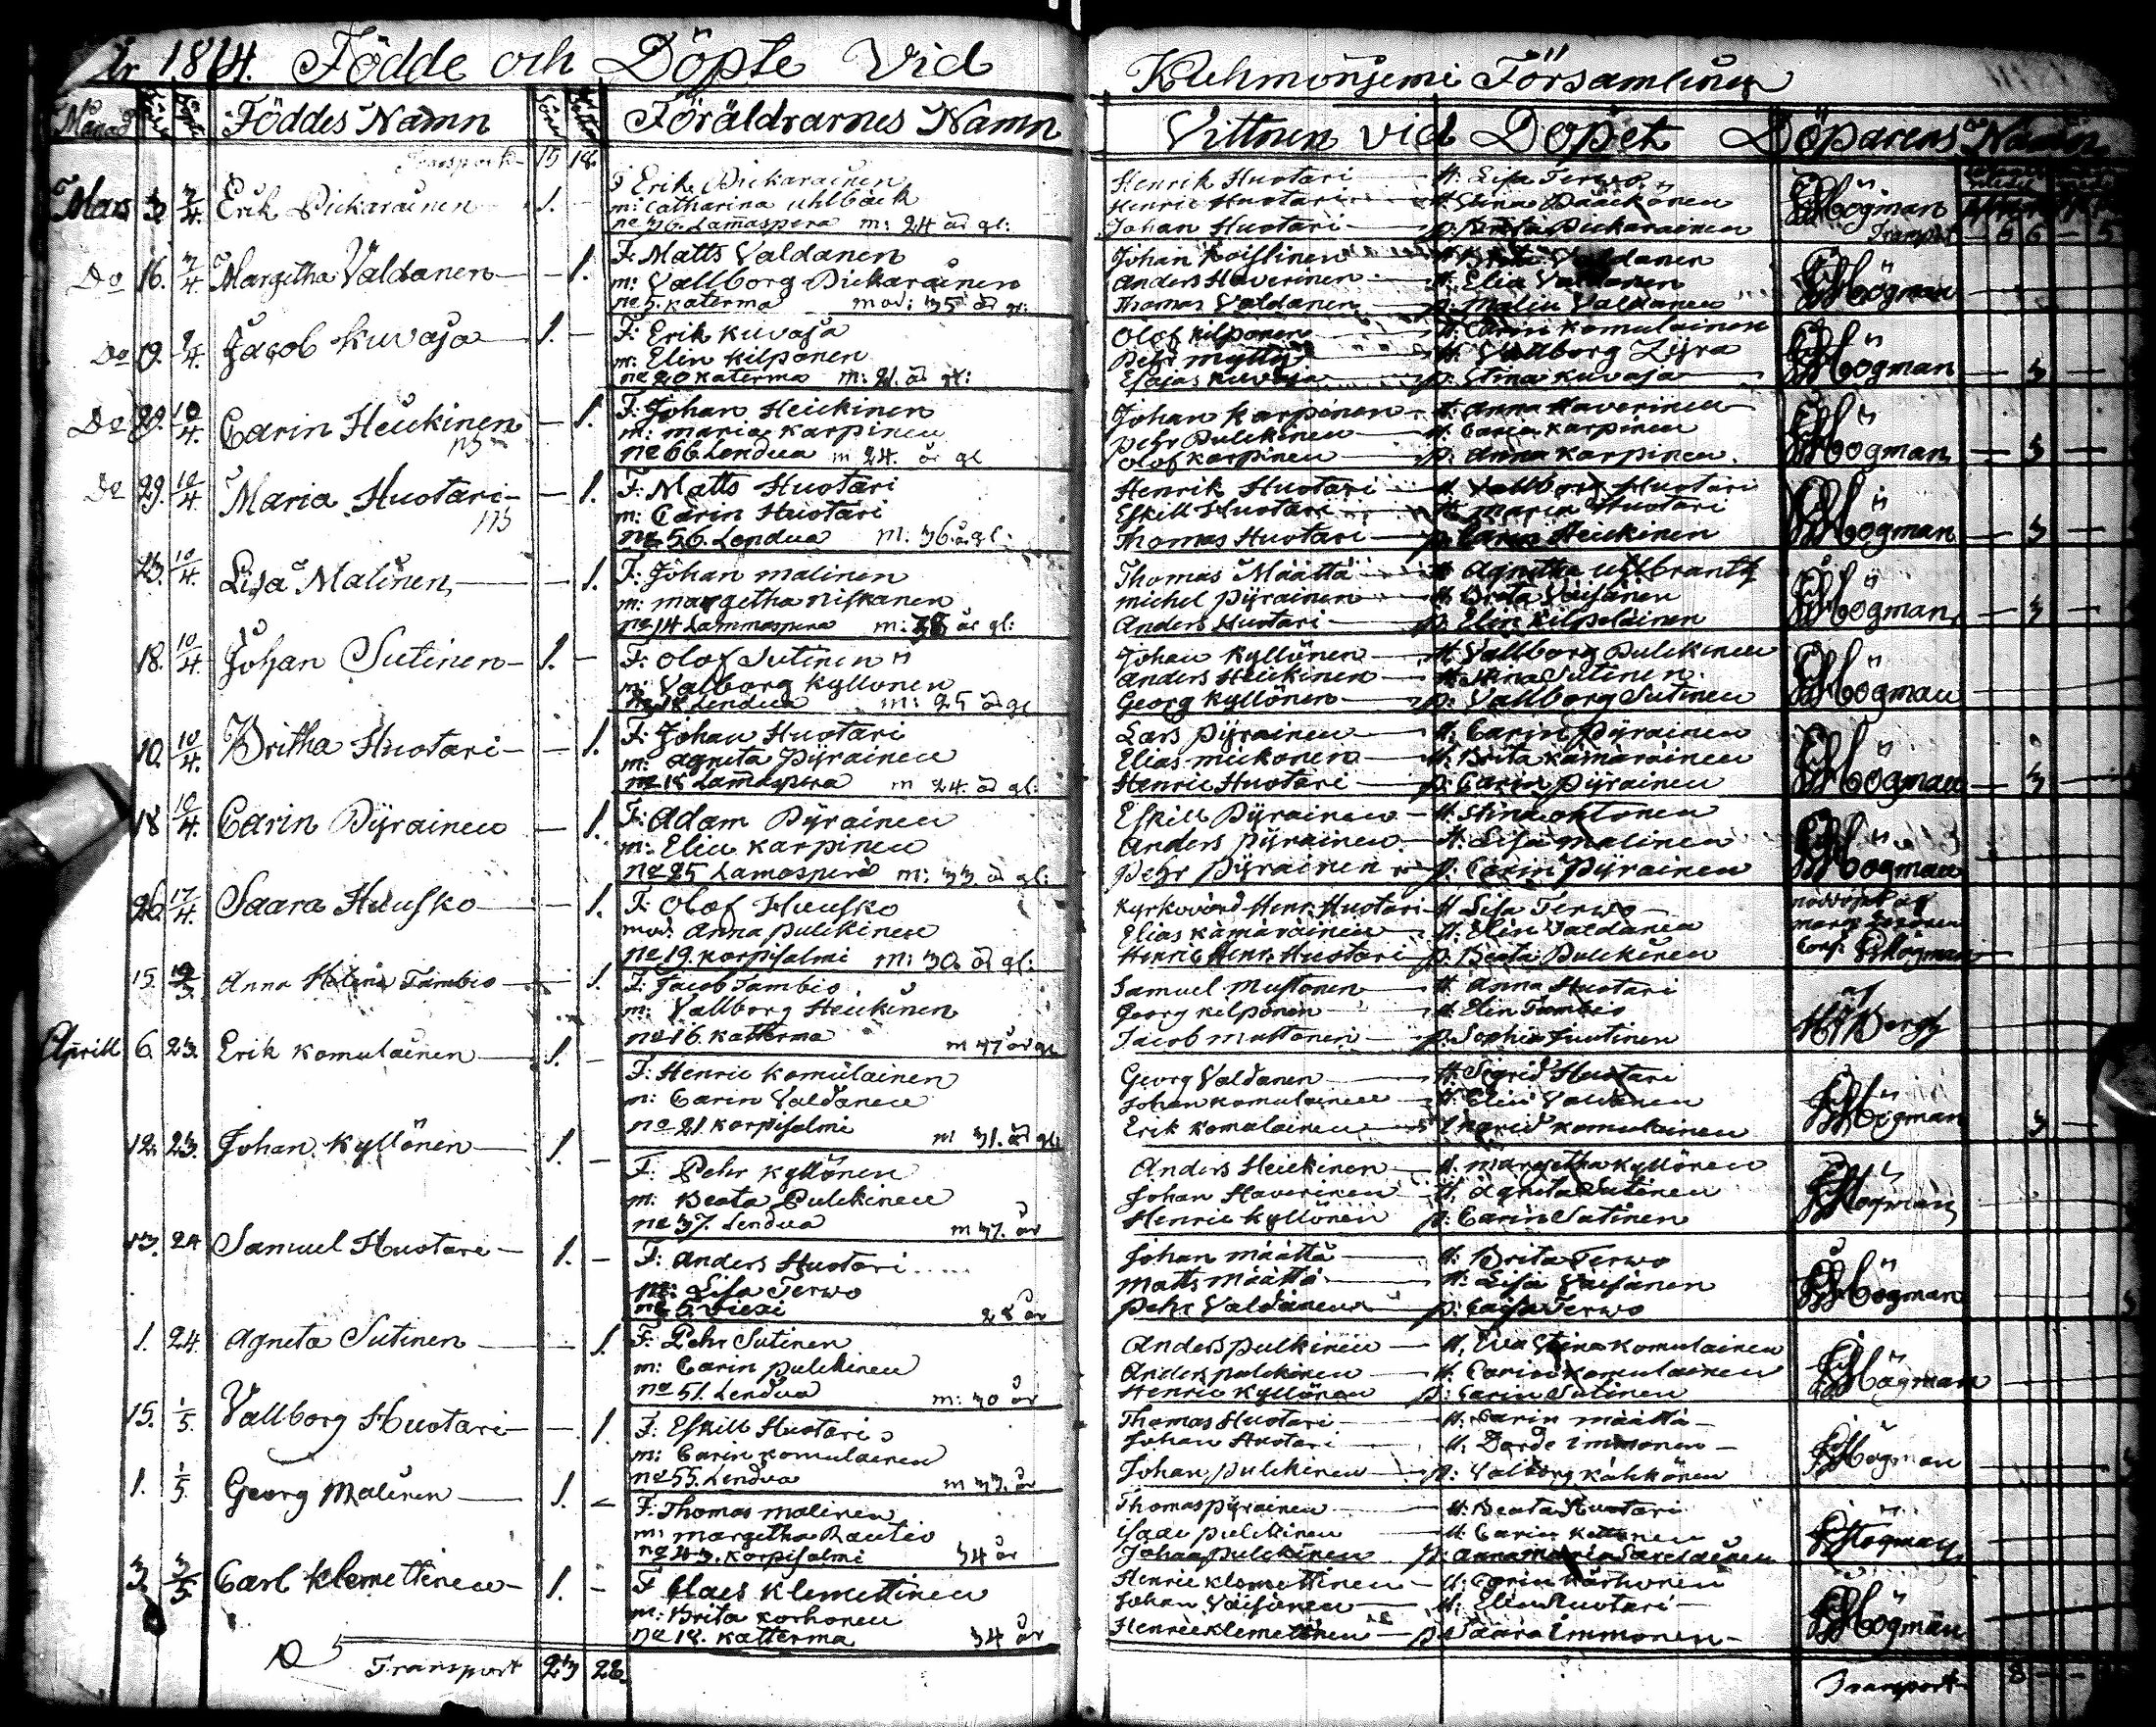 År 1814. Födde och Döpte Vid Kuhmoniemi Församling
Månad Föddes Namn Föräldrarnes Namn Vittnen vid Dopet Döparens Namn
Transport 15 18.
Mars 3. 3/4. Erik Pickarainen 1. -
F: Erik Pickarainen
m: Catharina Uhlbäck
no 36. Lamaspera m: 24 år gl:
Henrik Huotari H: Lisa Terwo
Henric Huotari H: Stina Pääkönen
Johan Huotari p: Brita Pickarainen
Högman
Transport 6 6 - 5
Do 16. 3/4. Margetha Valdanen - 1.
F: Matts Valdanen
m: Vallborg Pickarainen
no 5. Katerma mod: 35 år gl:
Johan Valdanen
Anders Haverinen H: Elin Valdanen
Thomas Valdanen p: Malin Valdanen
Högman
Do 19. /4. Jacob Kuvaja 1. -
F: Erik Kuvaja
m: Elin Kilponen
no 20 Katerma m: 21. år gl:
Olof Kilponen H: Carin Komulainen
Pehr H: Vallborg
Esaias Kuvaja p: Stina Kuvaja
Högman - 3 -
Do 29. 10/4. Carin Heickinen - 1.
F: Johan Heickinen
m: Maria Karpinen
no 66. Lendua m 24. år gl
Johan Karpinen H: Anna Haverinen
Pehr Pulckinen H: Carin Karpinen
Olof Karpinen p: Anna Karpinen.
Högman - 3 -
Do 29. 10/4. Maria Huotari - 1.
F: Matts Huotari
m: Carin Huotari
no 56. Lendua m: 36. år gl:
Henrik Huotari H: Vallborg Huotari
Eskill Huotari H: Maria Huotari
Thomas Huotari p: Carin Heickinen
Högman - 3 -
23. 10/4. Lisa Malinen - 1.
F: Johan Malinen
m: Margetha Niskanen
no 14 Lammaspera m: 38 år gl:
Thomas Määttä H: Agnetha
Michel Pyrainen H: Brita Väisänen
Anders Huotari p: Elin Kilpelainen
Högman - 3 -
18. 10/4. Johan Sutinen 1. -
F: Olof Sutinen
m: Valborg Kyllönen
Lendua m: 25 år gl
Johan Kyllönen H: Vallborg Pulckinen
Anders Heickinen H: Sutinen.
Georg Kyllönen p: Vallborg Sutinen
Högman
10. 10/4. Britha Huotari - 1.
F: Johan Huotari
m: Agneta Pyrainen
no 18 Lamaspera m 24. år gl:
Lars Pyrainen H: Carin Pyrainen
Elias Mickonen H: Brita Kämäräinen
Henric Huotari p: Carin Pyrainen
Högman - 3 -
18 10/4. Carin Pyrainen - 1.
F: Adam Pyrainen
m: Elin Karpinen
no 25 Lamaspera m: 33 år gl:
Eskill Pyrainen H: Stina Ohtonen
Anders Pyrainen H: Lisa Malinen
Pehr Pyrainen p: Carin Pyrainen
Högman
26. 17/4. Saara Huusko - 1.
F: Olof Huusko
mod: Anna Pulckinen
no 19. Korpisalmi m: 30 år gl:
Kyrkovärd Henr. Huotari H Lisa Terwo
Elias Kämäräinen H: Elin Valdanen
Henric Henr. Huotari p: Beata Pulckinen
nöddöpt af
Conf: Högman
15. 19/3. Anna Helena Tambio - 1.
F: Jacob Tambio
m: Vallborg Heickinen
no 16. Katterma m 47 år gl
Samuel Mustonen H Anna Huotari
Georg Kilponen H Elin Tambio
Jacob Mustonen p: Sophia Juutinen
af
Bergh
Aprill 6. 23. Erik Komulainen 1. -
F: Henric Komulainen
m: Carin Valdanen
no 21. Korpisalmi m 31. år gl
Georg Valdanen H: Sigrid Huotari
Johan Komulainen H: Elin Valdanen
Erik Komulainen p: Ingrid Komulainen
Högman 3 -
12. 23. Johan Kyllönen 1. -
F: Pehr Kyllönen
m: Beata Pulckinen
no 37. Lendua m 37. år
Anders Heickinen H. Margetha Kyllönen
Johan Haverinen H. Agneta Sutinen
Henric Kyllönen p: Carin Sutinen
Högman
13. 24 Samuel Huotari 1. -
F: Anders Huotari
m: Lisa Terwo
no 5. Viexi 28 år
Johan Määttä H: Brita Terwo
Matts Määttä H: Lisa Väisänen
Pehr Valdanen p: Caisa Terwo
Högman
1. 24. Agneta Sutinen - 1.
F: Pehr Sutinen
m: Carin Pulckinen
no 51. Lendua m: 30 år
Anders Pulkinen H. Eva Stina Komulainen
Anders Pulckinen H: Carin Komulainen
Henric Kyllönen p: Carin Sutinen
Högman
15. 1/5. Vallborg Huotari - 1.
F: Eskill Huotari
m: Carin Komulainen
no 55. Lendua m 33. år
Thomas Huotari H: Carin Määttä
Johan Huotari H: Darde Immonen
Johan Pulckinen p: Valborg Kähkönen
Högman
1. 1/5. Georg Malinen 1. -
F: Thomas Malinen
m: Margetha Rautio
no 43. Korpisalmi 34 år
Thomas Pyrainen H: Beata Huotari
Isaac Pulckinen H: Carin
Johan Pulckinen p: Anna Maria
Högman
3. 3/5 Carl Klemettinen 1. -
F Claes Klemettinen
m: Brita Korhonen
no 18. Katterma 34 år
Henric Klemettinen H: Carin Korhonen
Johan Väisänen H: Elin Huotari
Henric Klemettinen p Saara Immonen
Högman
Transport 23 28.
Transport 8 - -